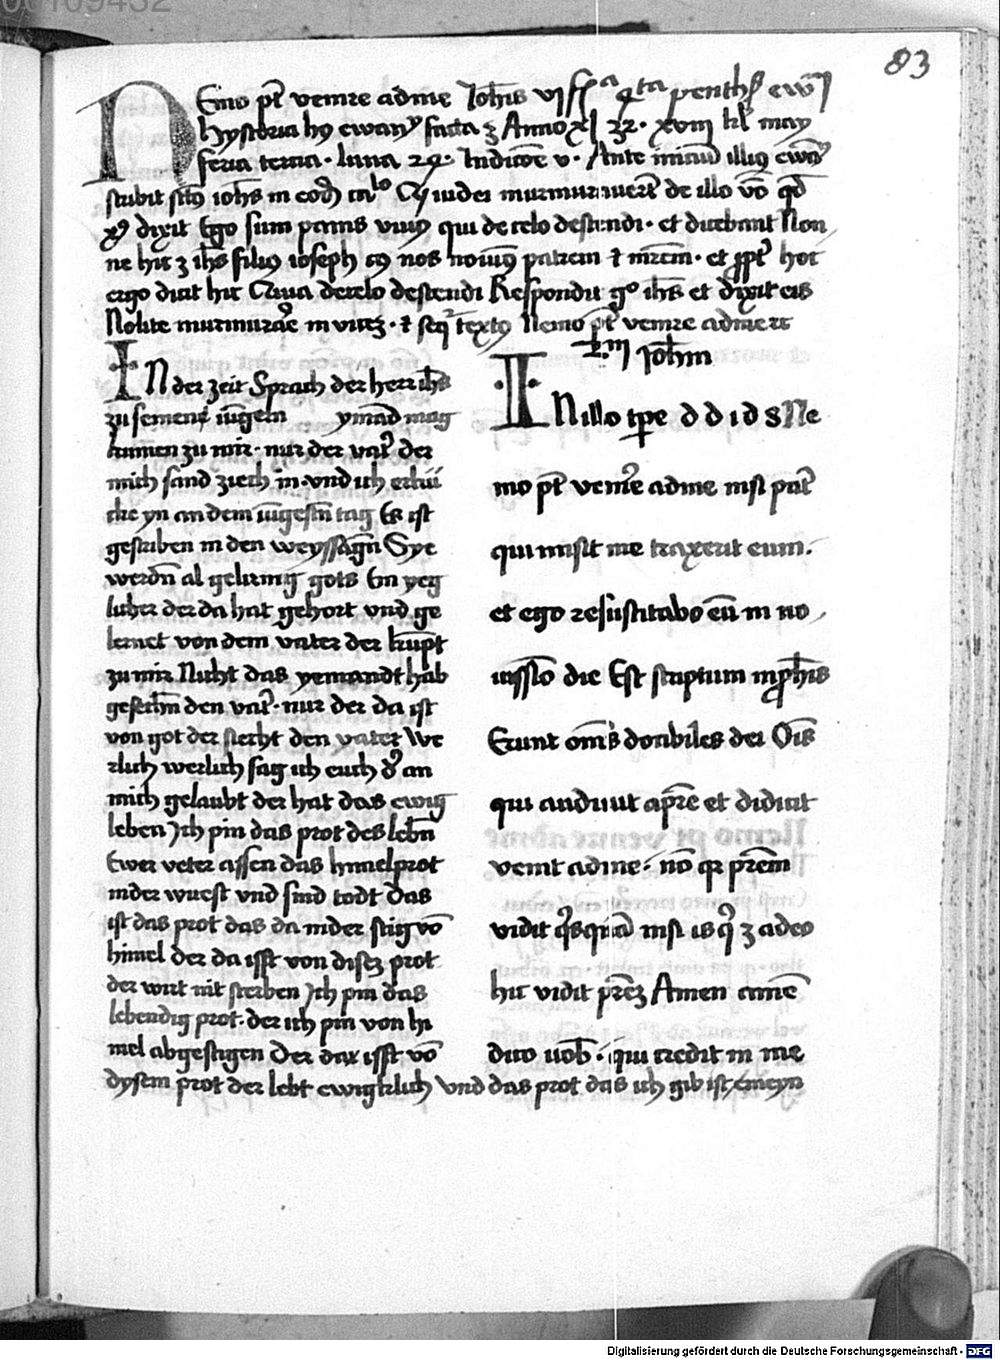 83
Nemo pt venire ad me Johis vj ff a qrta penthes ewn
hystoria hꝰ ewanꝭ facta ꝫ Anno xl 32 · xviij kl may
feria tercia · luna 24 · Indicōe v · Ante iniciū illiꝰ ewā
scribit scꝰ iohes in eodē ca lo Cꝫ iudei murmurauerūt de illo vō qd
xꝰ dixit Ego sum panis viuꝰ qui de celo descendi · et dicebant Non
ne hic ꝫ ihs filiꝰ ioseph cꝰ nos nouimꝰ patrem ⁊ mrem · et ppt hoc
ergo dicit hic Quia de celo descendi Respondit gº ihs et dixit eis
Nolite murmurare in vicē · ⁊ seq textꝰ Nemo pt venire ad me ⁊c
In der zeit Sprach der herr ihs
zu seinenn iūgeln ymād mag
kumen zu mir · nur der vatr der
mich sand ziech in · vnd ich erkü
cke yn an dem iūgestn tag Es ist
gescriben in den weyssagn Sye
werdn al gelirnig gots Ein yeg
licher der da hat gehort vnd ge
lernet von dem vater der kūpt
zu mir Nicht das yemandt hab
gesechn den vatr · nur der da ist
von got der siecht den vater We
rlich werlich sag ich euch dr an
mich gelaubt der hat das ewig
leben Ich pin das prot des lebn
Ewer veter assen das himelprot
in der wuest vnd sind todt Das
ist das prot das da nider stig vō
himel der da isst von disez prot
der wirt nit sterben Ich pin das
lebendig prot · der ich pin von hi
mel abgestigen Der dax isst vō
dysem prot der lebt ewigklich Vnd das prot das ich gib ist meyn
k.iij Johm
In illo tpe d d i d s Ne
mo pt venire ad me nsi patr
qui misit me traxerit eum ·
et ego resuscitabo eū in no
uissio die Est scriptum in pphis
Erunt oms docibiles dei Ois
qui audiuit a pre et didicit
venit ad me · nō qr prem
vidit qsqā nsi is qi ꝫ a deo
hic vidit prez Amen amē
dico uob · qui credit in me
Digitalisierung gefördert durch die Deutsche Forschungsgemeinschaft - DFG